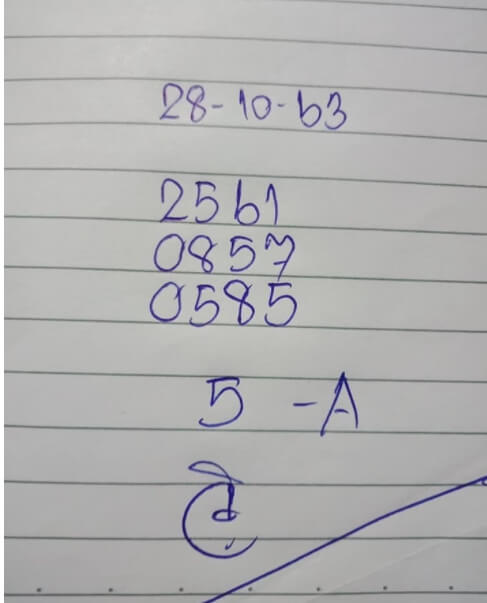 28-10-63
2561
0857
0585
5 -A